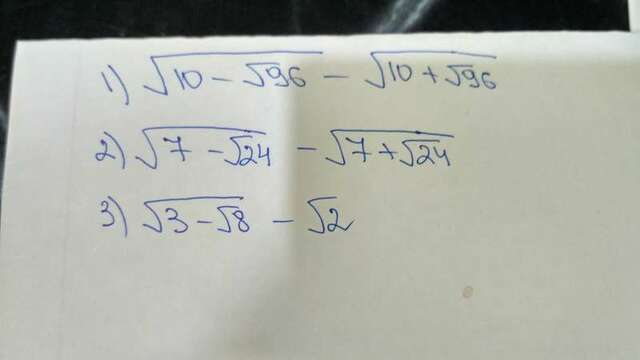 1) √(10 - √96) - √(10 + √96)
2) √(7 - √24) - √(7 + √24)
3) √(3 - √8) - √2